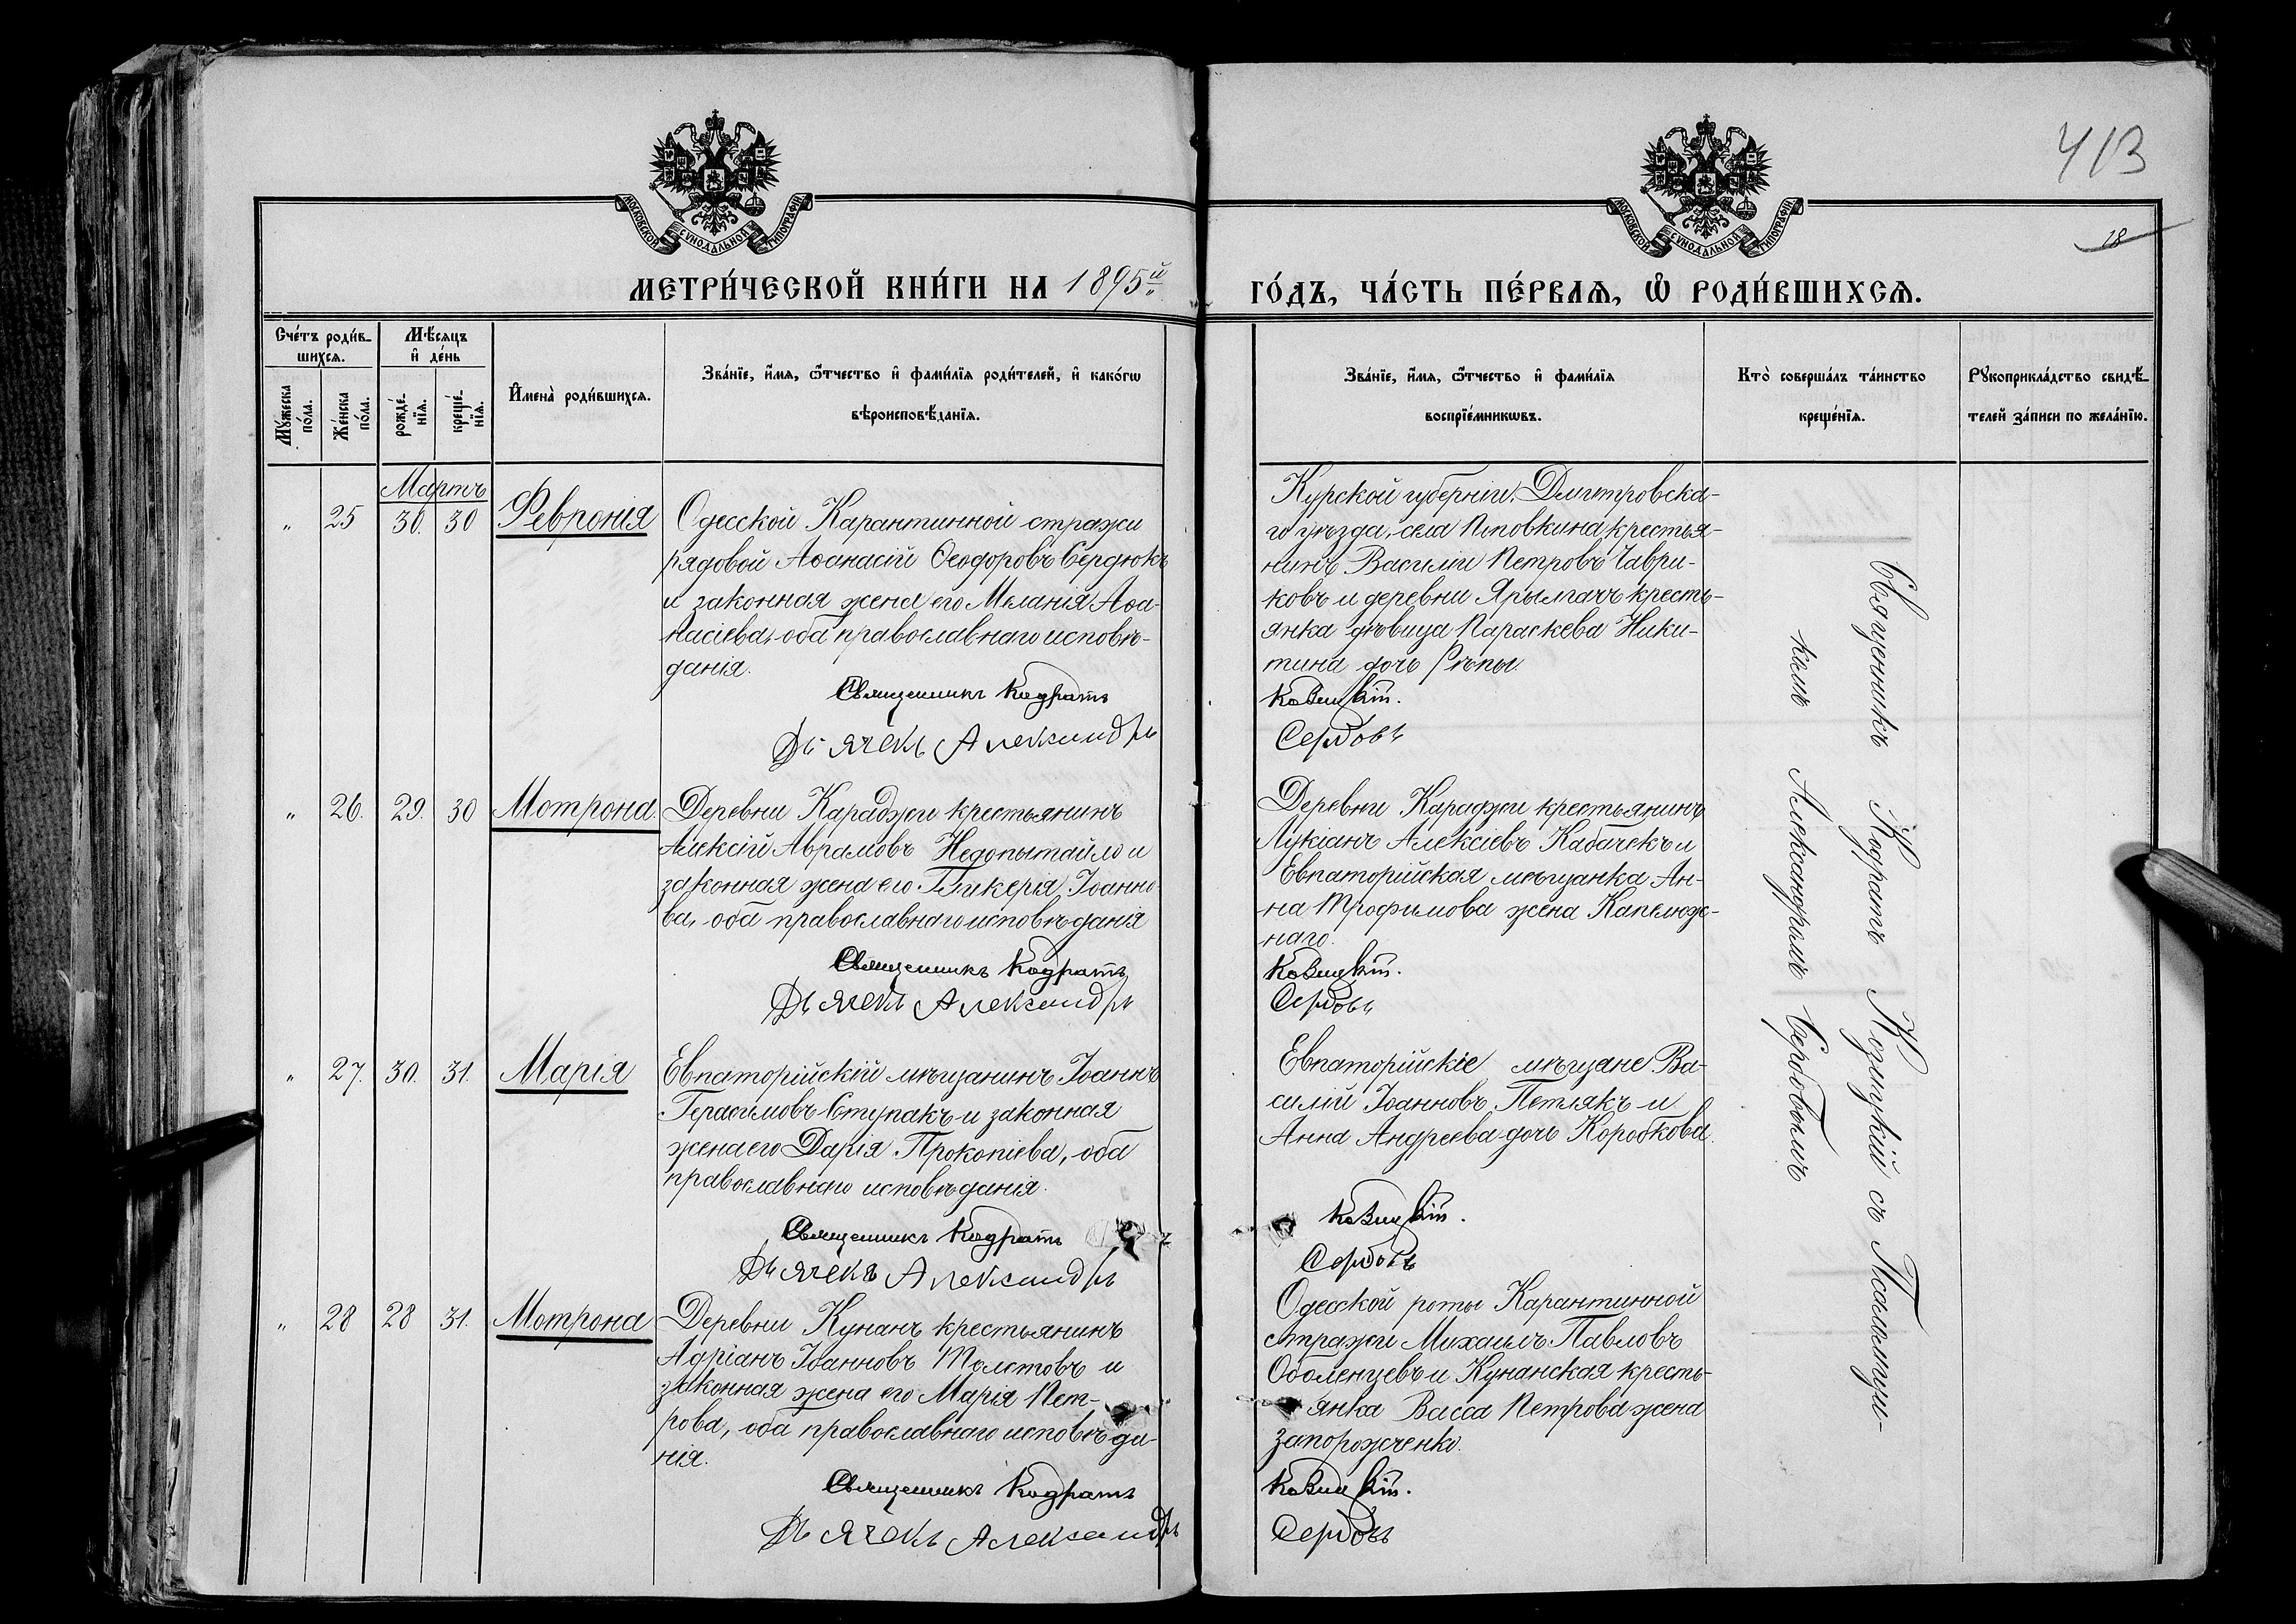 413
18
МОСКОВСКОЙ СѴНОДАЛЬНОЙ ТИПОГРАФІИ
МОСКОВСКОЙ СѴНОДАЛЬНОЙ ТИПОГРАФІИ
МЕТРИ́ЧЕСКОЙ КНИ́ГИ НА 1895й
ГО́ДЪ, ЧА́СТЬ ПЕ́РВАѦ, Ѿ РОДИ́ВШИХСѦ.
Сче́тъ роди́в-
шихсѧ.
Мꙋ́жеска
по́ла.
Же́нска
по́ла.
Мѣ́сѧцъ
и҆ де́нь
рожде́-
нїѧ.
креще́-
нїѧ.
И҆мена̀ роди́вшихсѧ.
Зва́нїе, и҆́мѧ, ѻ҆́тчество и҆ фами́лїѧ роди́телей, и҆ како́гѡ
вѣроисповѣ́данїѧ.
Зва́нїе, и҆́мѧ, ѻ҆́тчество и҆ фами́лїѧ
воспрїе́мникѡвъ.
Кто̀ соверша́лъ та́инство
креще́нїѧ.
Рꙋкоприкла́дство свидѣ́-
телей за́писи по жела́нїю.
Мартъ
„ 25 30. 30 Феврѡнія
Одесской Карантинной стражи
рядовой Аѳанасій Ѳеодоровъ Сердюкъ
и законная жена его Меланія Аѳа-
насіева, оба православнаго исповѣ-
данія.
Священникъ Кодратъ
Дьячекъ Александръ
Курской губерніи, Дмитровска-
го уѣзда, села Поповкина крестья-
нинъ Василій Петровъ Чаври-
ковъ и деревни Ярылгачъ кресть-
янка дѣвица Параскева Ники-
тина дочь Рѣпы.
Козицкій.
Сербовъ
„ 26. 29. 30 Мотрона.
Деревни Караджи крестьянинъ
Алексій Аврамовъ Недопытайло и
законная жена его Гликерія Іоанно-
ва, оба православнаго исповѣданія
Священникъ Кодратъ
Дьячекъ Александръ
Деревни Караджи крестьянинъ
Лукіанъ Алексіевъ Кабачекъ и
Евпаторійская мѣщанка Ан-
на Трофимова жена Капелюж-
наго.
Козицкій.
Сербовъ
„ 27. 30. 31. Марія
Евпаторійскій мѣщанинъ Іоаннъ
Герасимовъ Ступакъ и законная
жена его Дарія Прокопіева, оба
православнаго исповѣданія.
Священникъ Кодратъ
Дьячекъ Александръ
Евпаторійскіе мѣщане Ва-
силій Іоанновъ Петлякъ и
Анна Андреева дочь Коробкова.
Козицкій.
Сербовъ
„ 28 28 31. Мотрона
Деревни Кунанъ крестьянинъ
Адріанъ Іоанновъ Толстовъ и
законная жена его Марія Пет-
рова, оба православнаго исповѣда-
нія.
Священникъ Кодратъ
Дьячекъ Александръ
Одесской роты Карантинной
стражи Михаилъ Павловъ
Оболенцевъ и Кунанская кресть-
янка Васса Петрова жена
Запорожченко.
Козицкій.
Сербовъ
Священникъ Кодратъ Козицкій съ Псаломщи-
комъ Александромъ Сербовымъ